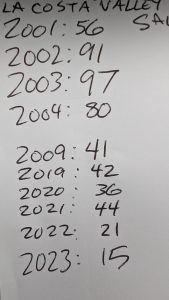 LA COSTA VALLEY
2001: 56
2002: 91
2003: 97
2004: 80
2009: 41
2019: 42
2020: 36
2021: 44
2022: 21
2023: 15